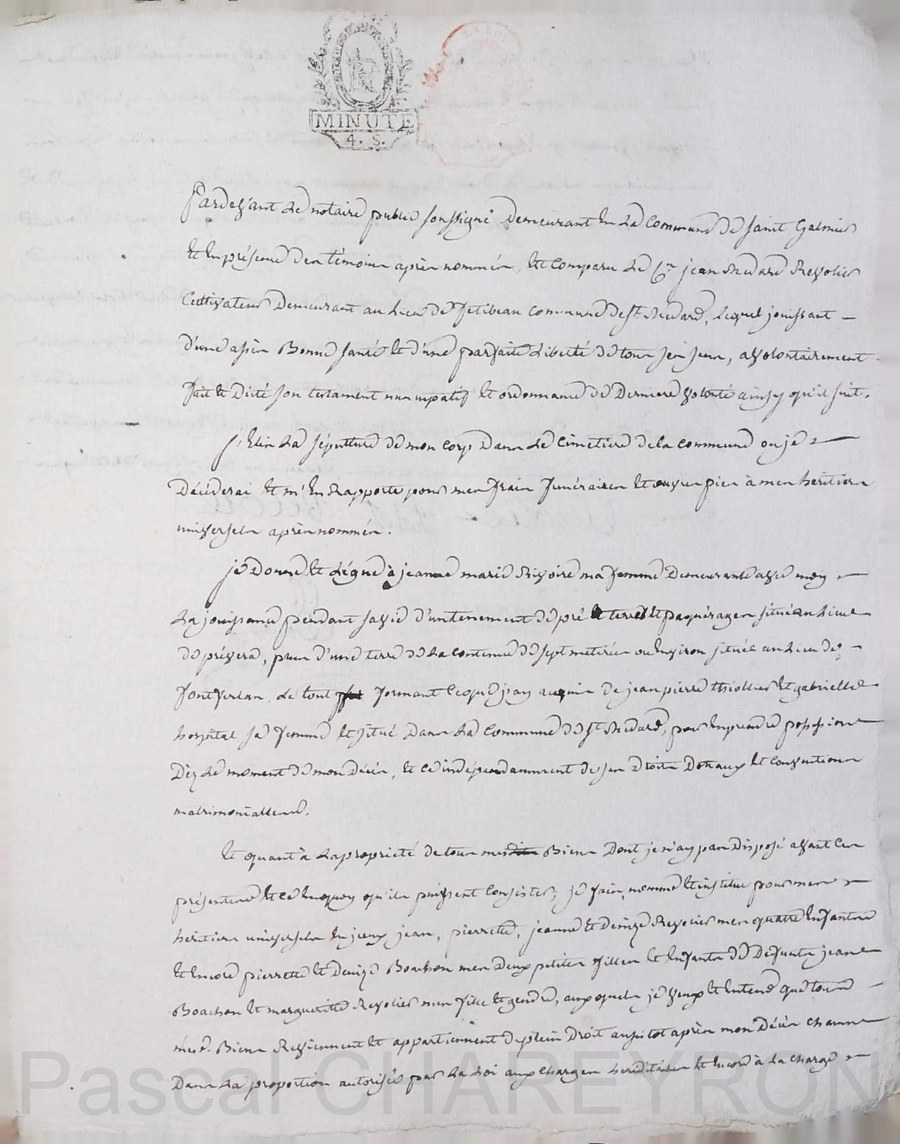 MINUTE
4. S.
Pardevant le notaire public soussigné demeurant en la commune de saint Galmier
et en présence des témoins après nommés, est comparu le Cn. jean Medard Revolier
Cultivateur demeurant au lieu de commune de St. Medard, lequel jouissant
d'une assès bonne santé et d'une parfaite liberté de tous ses sens, a volontairement
fait et dicté son testament nuncupatif et ordonnance de derniere volonté ainsy qu'il suit.
J'Elis la sépulture de mon corp dans le cimetière de la commune ou je
décéderai et m'en rapporte pour mes frais funéraires et œuvres pies à mes heritiers
universels après nommés.
je donne et lègue à jeanne marie Rivoire ma femme demeurante avec moy
la jouissance pendant sa vie d'un tenement de pré et terres et paquérages situé au lieu
de , plus d'une terre de la contenue de sept meterées ou environ située au lieu de
, le tout formant ce que j'ay aquis de jean pierre thiollier et gabrielle
hospital sa femme et situé dans la commune de St. Medard, pour en prendre possession
dèz le moment de mon décès, et ce indépendamment de ses droits dotaux et conventions
matrimonialles.
et quant à la propriété de tous mes biens dont je n'ay pas disposé avant ces
présentes et en quoy qu'ils puissent consister, je fais, nomme et institue pour mes
héritiers universels en jceux jean, pierrette, jeanne et Denize Revolier mes quatre enfants
et encore pierrette et Denize Bouchon mes deux petites filles et enfants de defunts jean
Bouchon et marguerite Revolier mes fille et gendre, auxquels je veux et entend que tous
mesd. biens reviennent et appartiennent de plein droit aussitot après mon décès chacune
dans la proportion autorisée par la loi aux charges héréditaires et encore à la charge
Pascal CHAREYRON